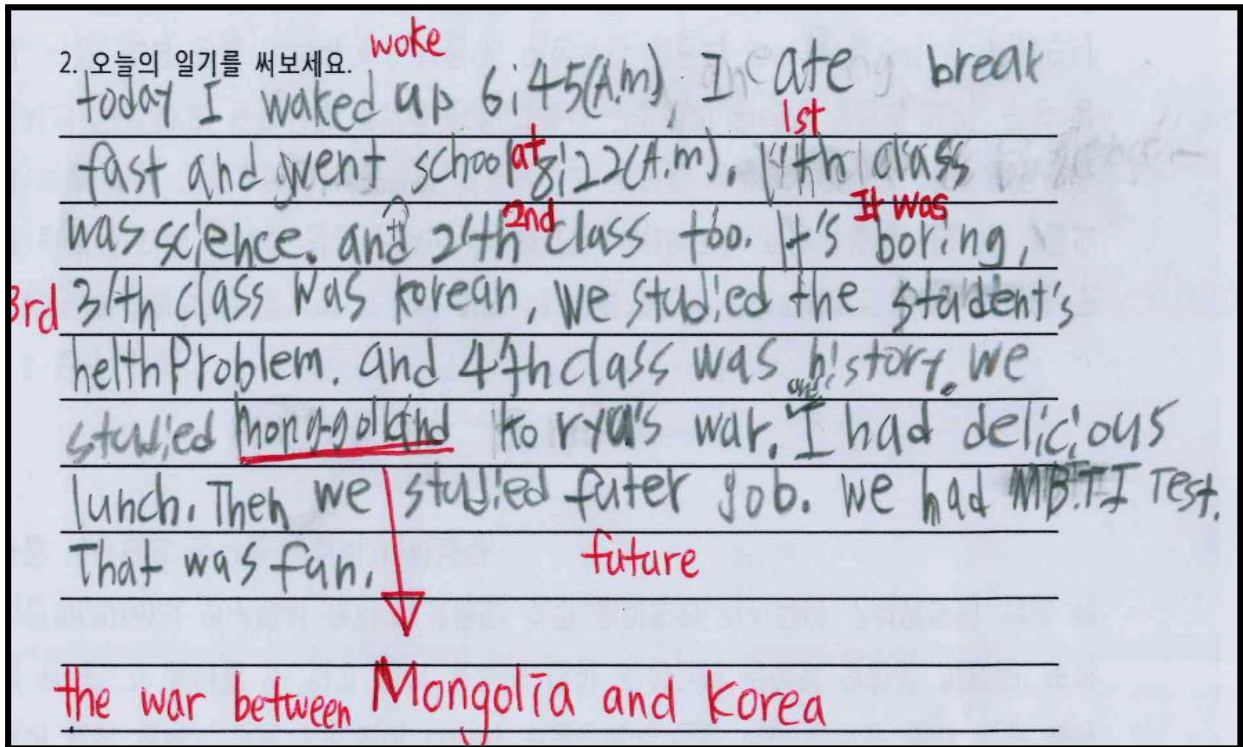 2. 오늘의 일기를 써보세요. woke
today I waked up 6:45(A.m), I ate break
1st
fast and went school at 8:22(A.m). 1'th class
2nd It was
was science. and 2'th class too. It's boring,
3rd 3'th class was korean, we studied the student's
helth Problem. and 4'th class was history. we
and
studied mong-golland korya's war. I had delicious
lunch. Then we studied futer job. we had MBTI Test.
That was fun.
future
the war between Mongolia and Korea